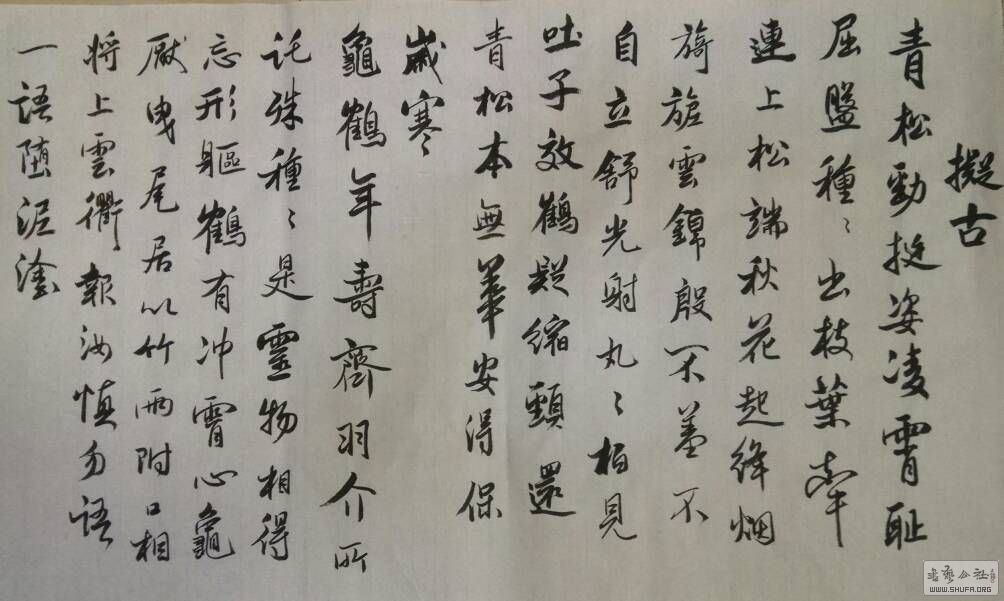 擬古
青松勁挺姿凌霄恥
屈盤種〻出枝葉牽
連上松端秋花起絳烟
旖旎雲錦殷不羞不
自立舒光射丸〻柏見
吐子效鶴疑縮頸還
青松本無華安得保
歲寒〻
龜鶴年壽齊羽介所
託殊種〻是靈物相得
忘形軀鶴有冲霄心龜
厭曳尾居以竹兩附口相
將上雲衢報汝慎勿語
一語堕泥塗
书艺公社
WWW.SHUFA.ORG